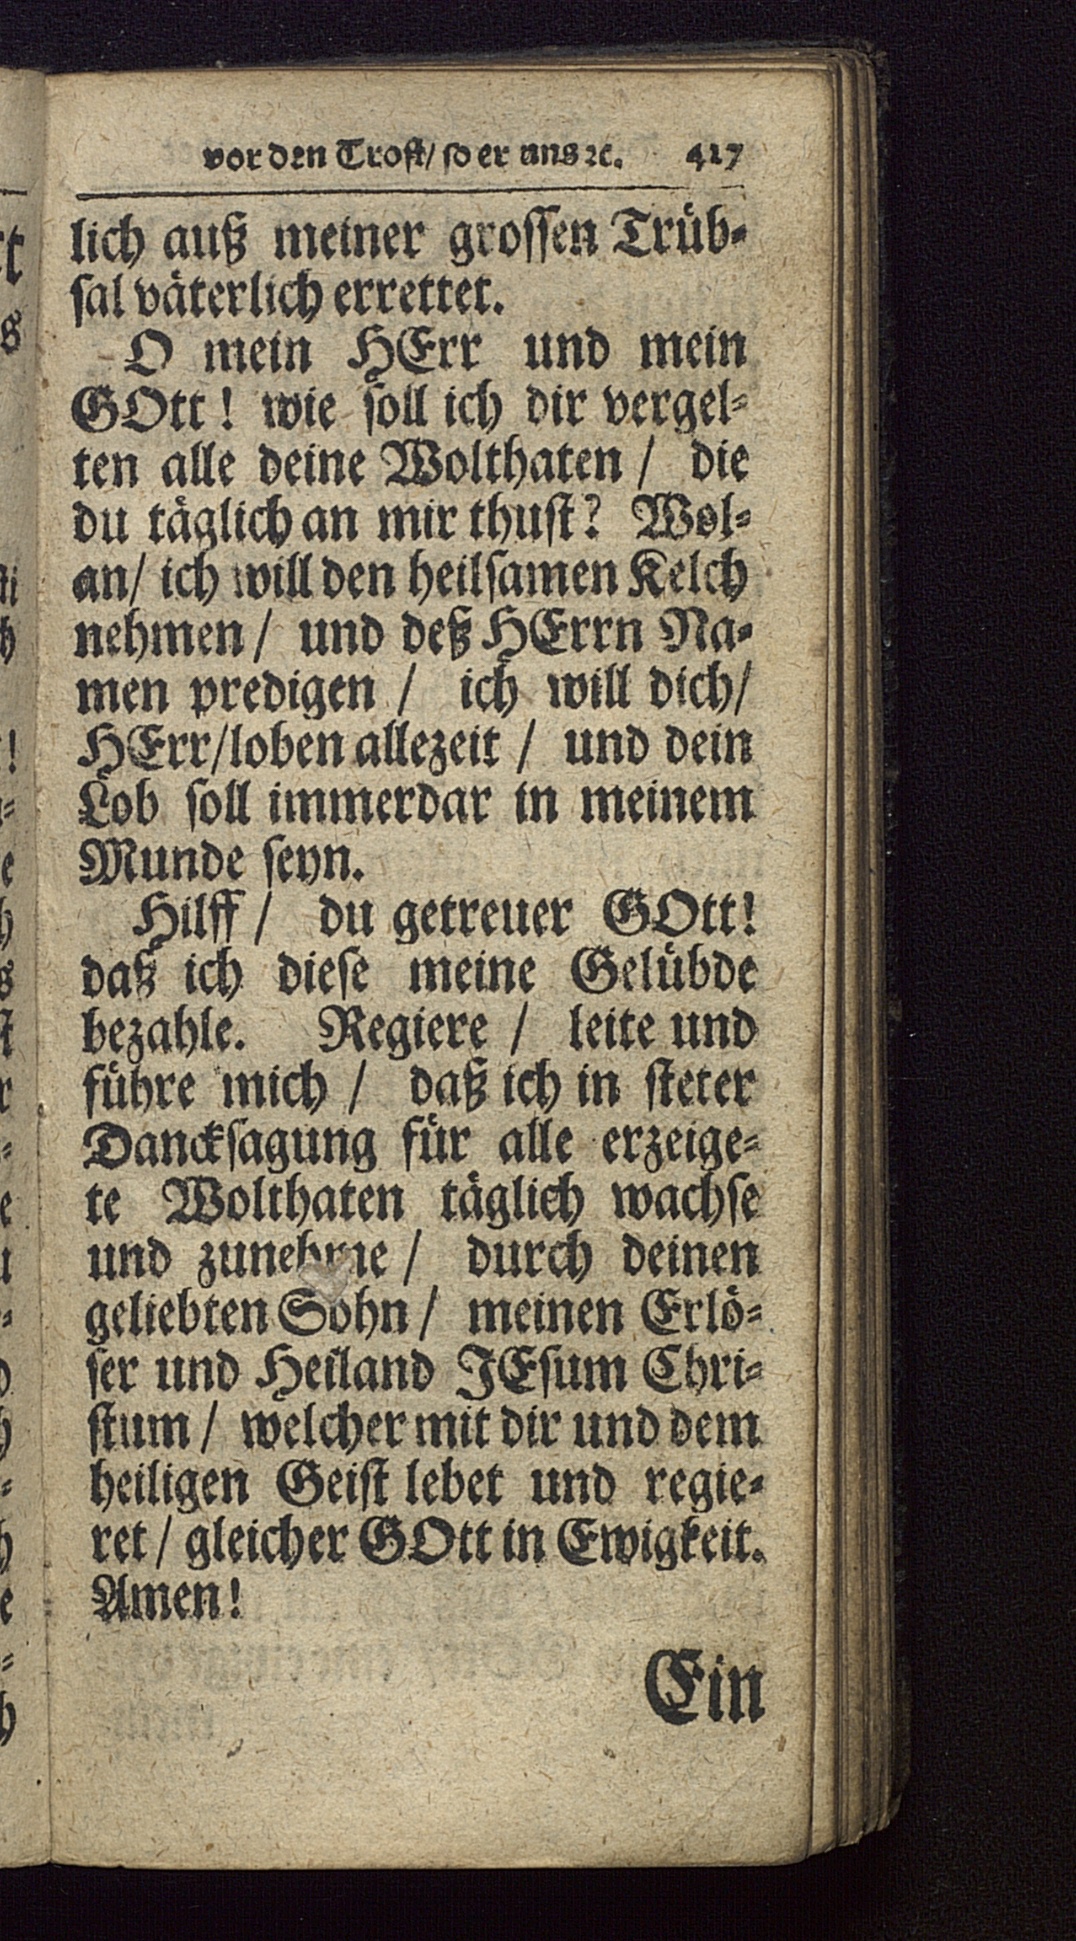 vor den Trost/ so er uns ꝛc. 417
lich auß meiner grossen Trüb-
sal väterlich errettet.
O mein HErr und mein
GOtt! wie soll ich dir vergel-
ten alle deine Wolthaten / die
du täglich an mir thust? Wol-
an/ ich will den heilsamen Kelch
nehmen / und deß HErrn Na-
men predigen / ich will dich/
HErr/loben allezeit / und dein
Lob soll immerdar in meinem
Munde seyn.
Hilff / du getreuer GOtt!
daß ich diese meine Gelübde
bezahle. Regiere / leite und
führe mich / daß ich in steter
Dancksagung für alle erzeige-
te Wolthaten täglich wachse
und zunehme / durch deinen
geliebten Sohn / meinen Erlö-
ser und Heiland JEsum Chri-
stum / welcher mit dir und dem
heiligen Geist lebet und regie-
ret / gleicher GOtt in Ewigkeit.
Amen!
Ein